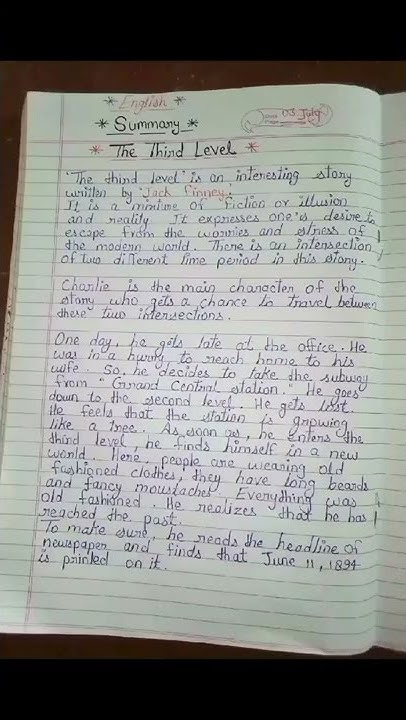 * English *
03 July
* Summary *
* The Third Level *
'The third level' is an interesting story
written by 'Jack Finney'.
It is a mixture of fiction or illusion
and reality. It expresses one's desire to
escape from the worries and stress of
the modern world. There is an intersection
of two different time period in this story.
Charlie is the main character of the
story who gets a chance to travel between
these two intersections.
One day, he gets late at the office. He
was in a hurry to reach home to his
wife. So, he decides to take the subway
from "Grand Central station." He goes
down to the second level. He gets lost.
He feels that the station is growing
like a tree. As soon as, he enters the
third level, he finds himself in a new
world. Here, people are wearing old
fashioned clothes, they have long beards
and fancy moustaches. Everything was
old fashioned. He realizes that he has
reached the past.
To make sure, he reads the headline of
newspaper and finds that June 11, 1894
is printed on it.